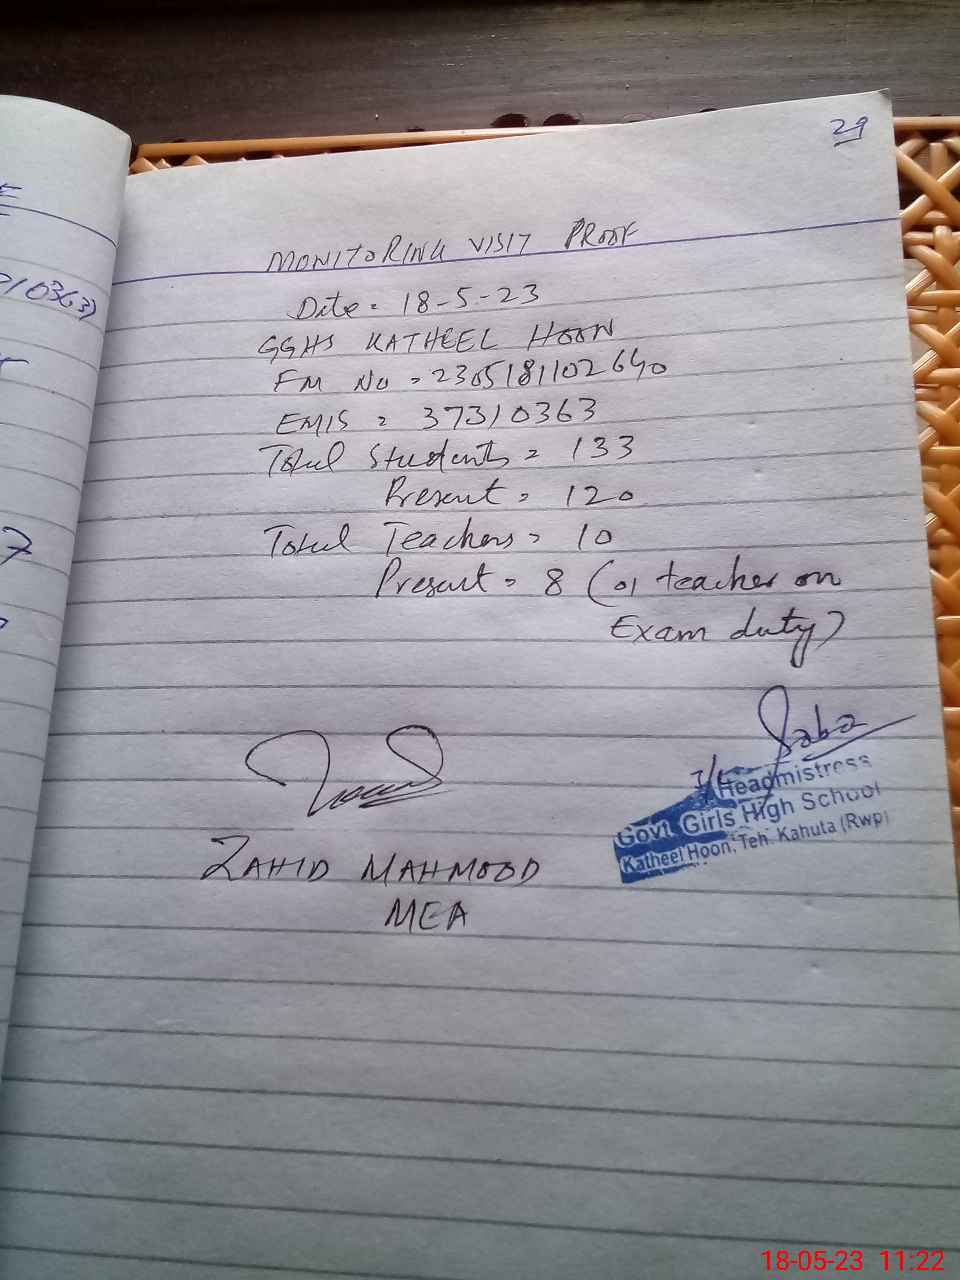 29
MONITORING VISIT PROOF
Date = 18-5-23
GGHS KATHEEL HOON
FM No = 2305181102640
EMIS = 37310363
Total Students = 133
Present = 120
Total Teachers = 10
Present = 8 (01 teacher on
Exam duty)
Saba
I/C Headmistress
Govt. Girls High School
Katheel Hoon, Teh. Kahuta (Rwp)
ZAHID MAHMOOD
MEA
10363)
7
18-05-23 11:22